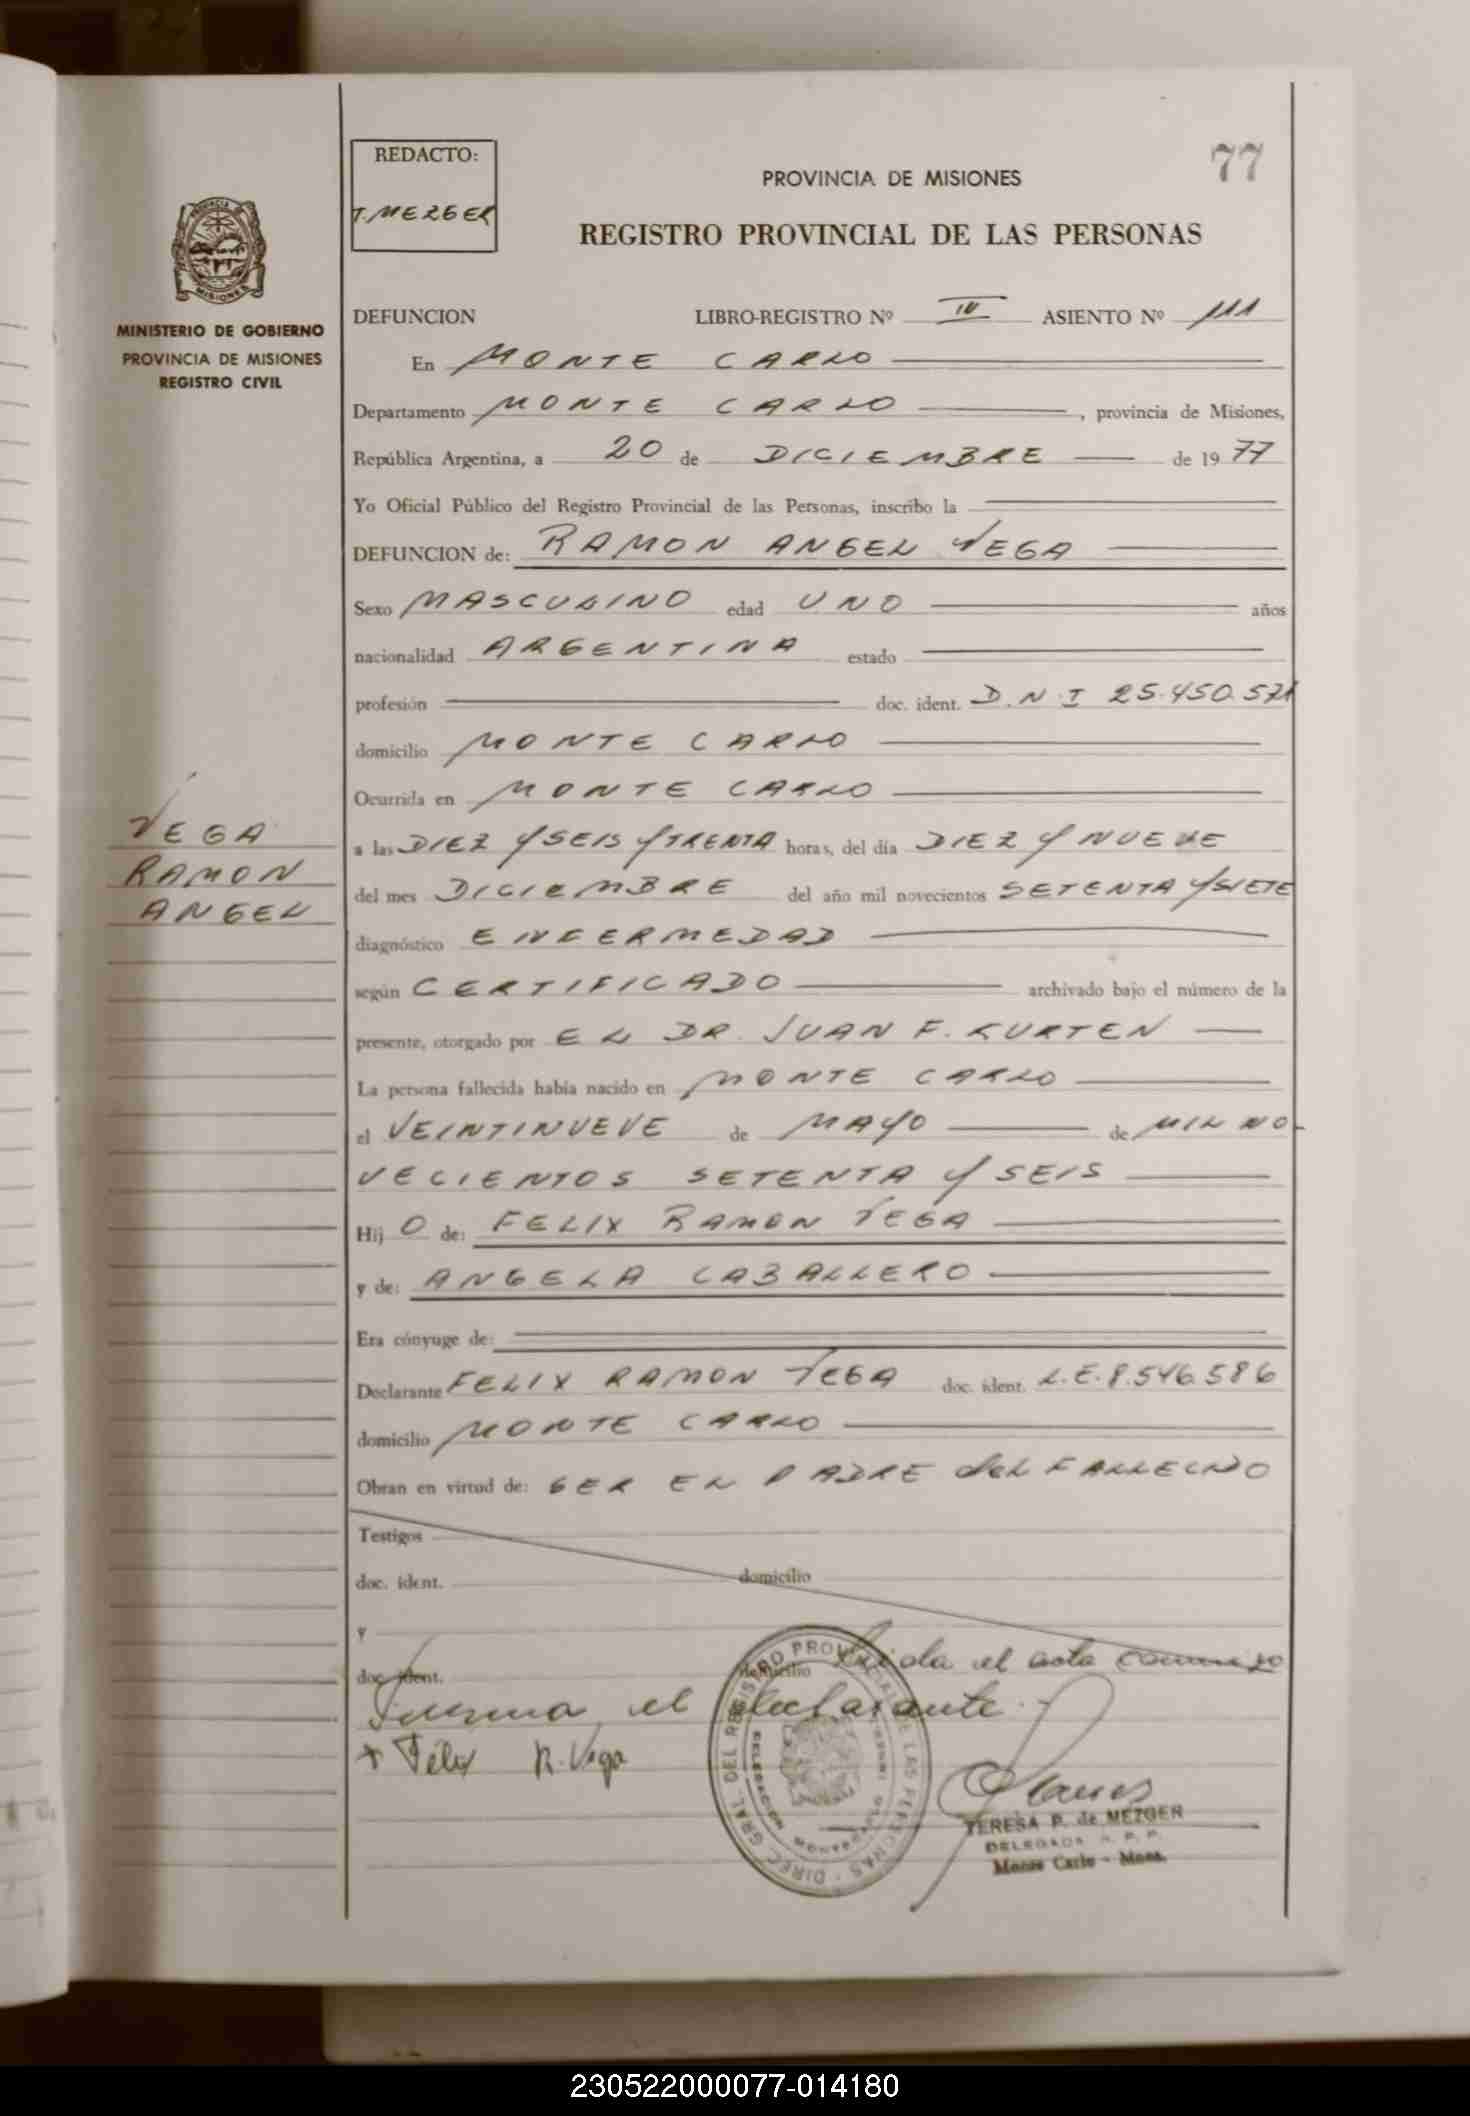 77
REDACTO:
T. MEZGER
PROVINCIA DE MISIONES
REGISTRO PROVINCIAL DE LAS PERSONAS
MINISTERIO DE GOBIERNO
PROVINCIA DE MISIONES
REGISTRO CIVIL
DEFUNCION LIBRO-REGISTRO Nº IV ASIENTO Nº 111
En MONTE CARLO
Departamento MONTE CARLO, provincia de Misiones,
República Argentina, a 20 de DICIEMBRE de 1977
Yo Oficial Público del Registro Provincial de las Personas, inscribo la
DEFUNCION de: RAMON ANGEL VEGA
Sexo MASCULINO edad UNO años
nacionalidad ARGENTINA estado
profesión doc. ident. D.N.I 25.450.571
domicilio MONTE CARLO
Ocurrida en MONTE CARLO
VEGA
RAMON
ANGEL
a las DIEZ Y SEIS Y TRENTA horas, del día DIEZ Y NUEVE
del mes DICIEMBRE del año mil novecientos SETENTA Y SIETE
diagnóstico ENFERMEDAD
según CERTIFICADO archivado bajo el número de la
presente, otorgado por EL DR. JUAN F. KURTEN
La persona fallecida había nacido en MONTE CARLO
el VEINTINUEVE de MAYO de MIL NO-
VECIENTOS SETENTA Y SEIS
Hij O de: FELIX RAMON VEGA
y de: ANGELA CABALLERO
Era cónyuge de:
Declarante FELIX RAMON VEGA doc. ident. L.E. 8.546.586
domicilio MONTE CARLO
Obran en virtud de: SER EL PADRE del FALLECIDO
Testigos
doc. ident. domicilio
y
doc. ident. domicilio Leida el acta
Firma el declarante.
+ Félix R. Vega
DIREC. GRAL. DEL REGISTRO PROVINCIAL DE LAS PERSONAS
DELEGACION MISIONES
TERESA P. de MEZGER
DELEGADA R. P. P.
Monte Carlo - Mnes.
230522000077-014180